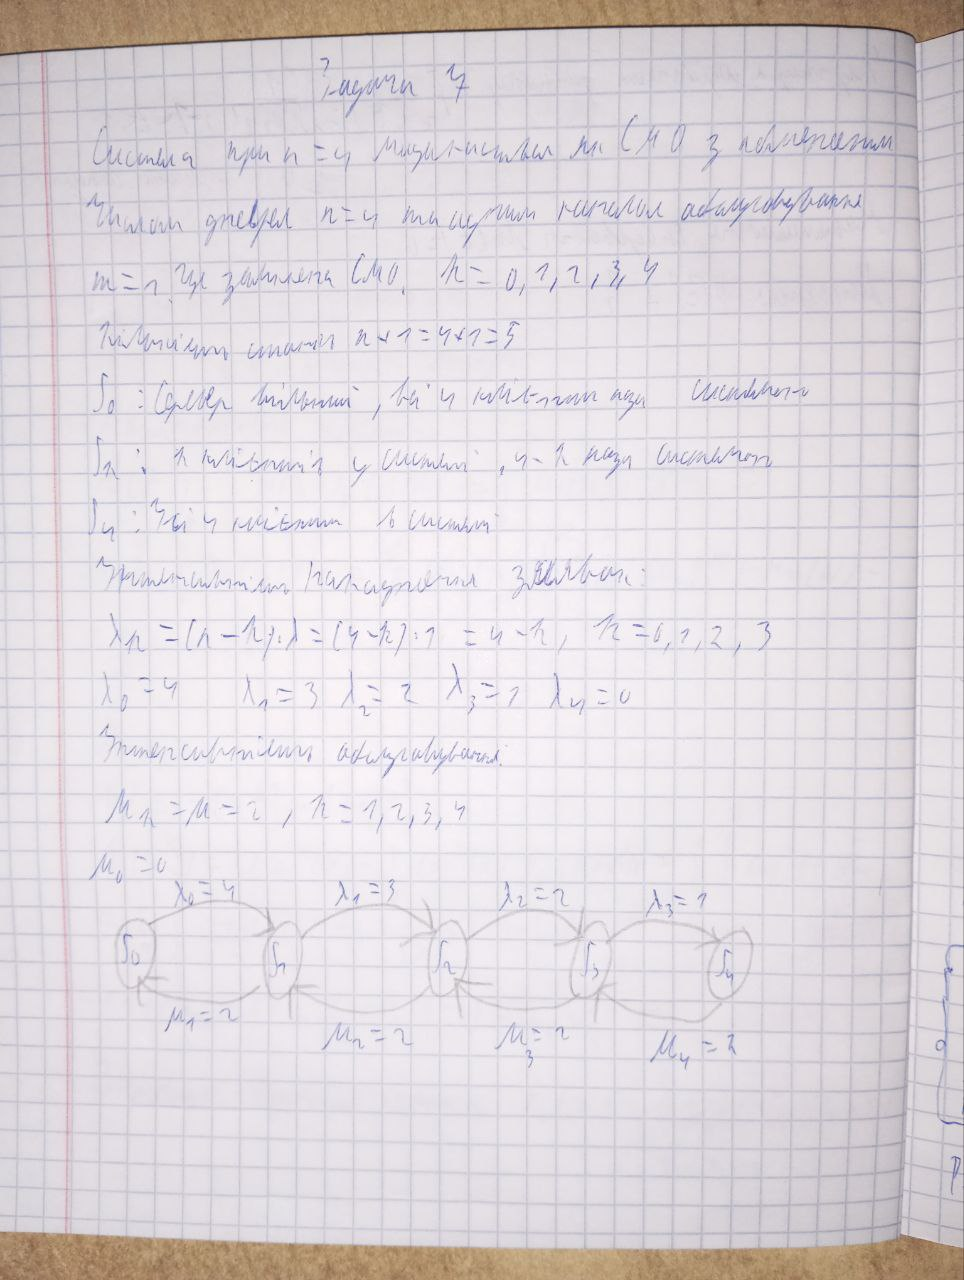 Задача 7
Система при n = 4 моделюється як СМО з обмеженим
числом джерел n=4 та одним каналом обслуговування
m=1. Це замкнена СМО. k = 0, 1, 2, 3, 4
Кількість станів n+1=4+1=5
S₀ : Сервер вільний, всі 4 клієнти поза системою
Sₖ : k клієнтів у системі, 4-k поза системою
S₄ : Усі 4 клієнти в системі
Інтенсивність надходження заявок:
λₖ = (n-k)·λ = (4-k)·1 = 4-k, k=0,1,2,3
λ₀=4 λ₁=3 λ₂=2 λ₃=1 λ₄=0
Інтенсивність обслуговування:
μₖ = μ = 2, k=1,2,3,4
μ₀ = 0
λ₀=4 λ₁=3 λ₂=2 λ₃=1
S₀ S₁ S₂ S₃ S₄
μ₁=2 μ₂=2 μ₃=2 μ₄=2